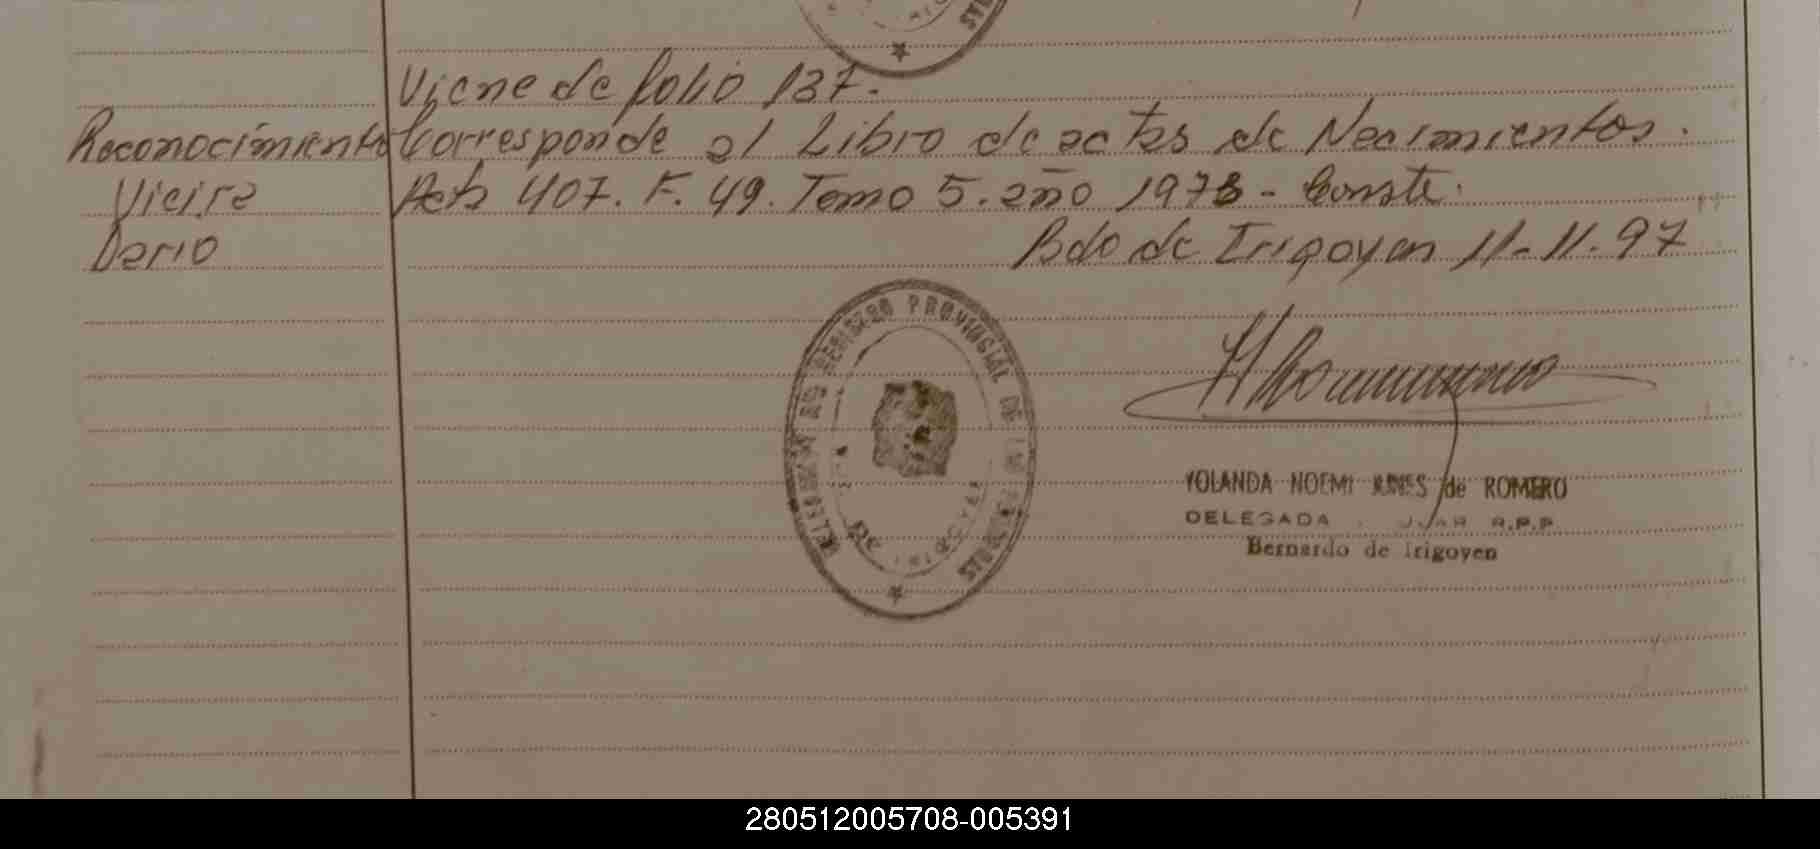 Viene de folio 137.
Reconocimiento Corresponde al Libro de actas de Nacimientos.
Vieira Acta 407. F. 49. Tomo 5. año 1978 - Conste.
Dario
Bdo de Irigoyen 11-11-97
REGISTRO PROVINCIAL DE LAS PERSONAS
YOLANDA NOEMI de ROMERO
DELEGADA R.P.P.
Bernardo de Irigoyen
280512005708-005391